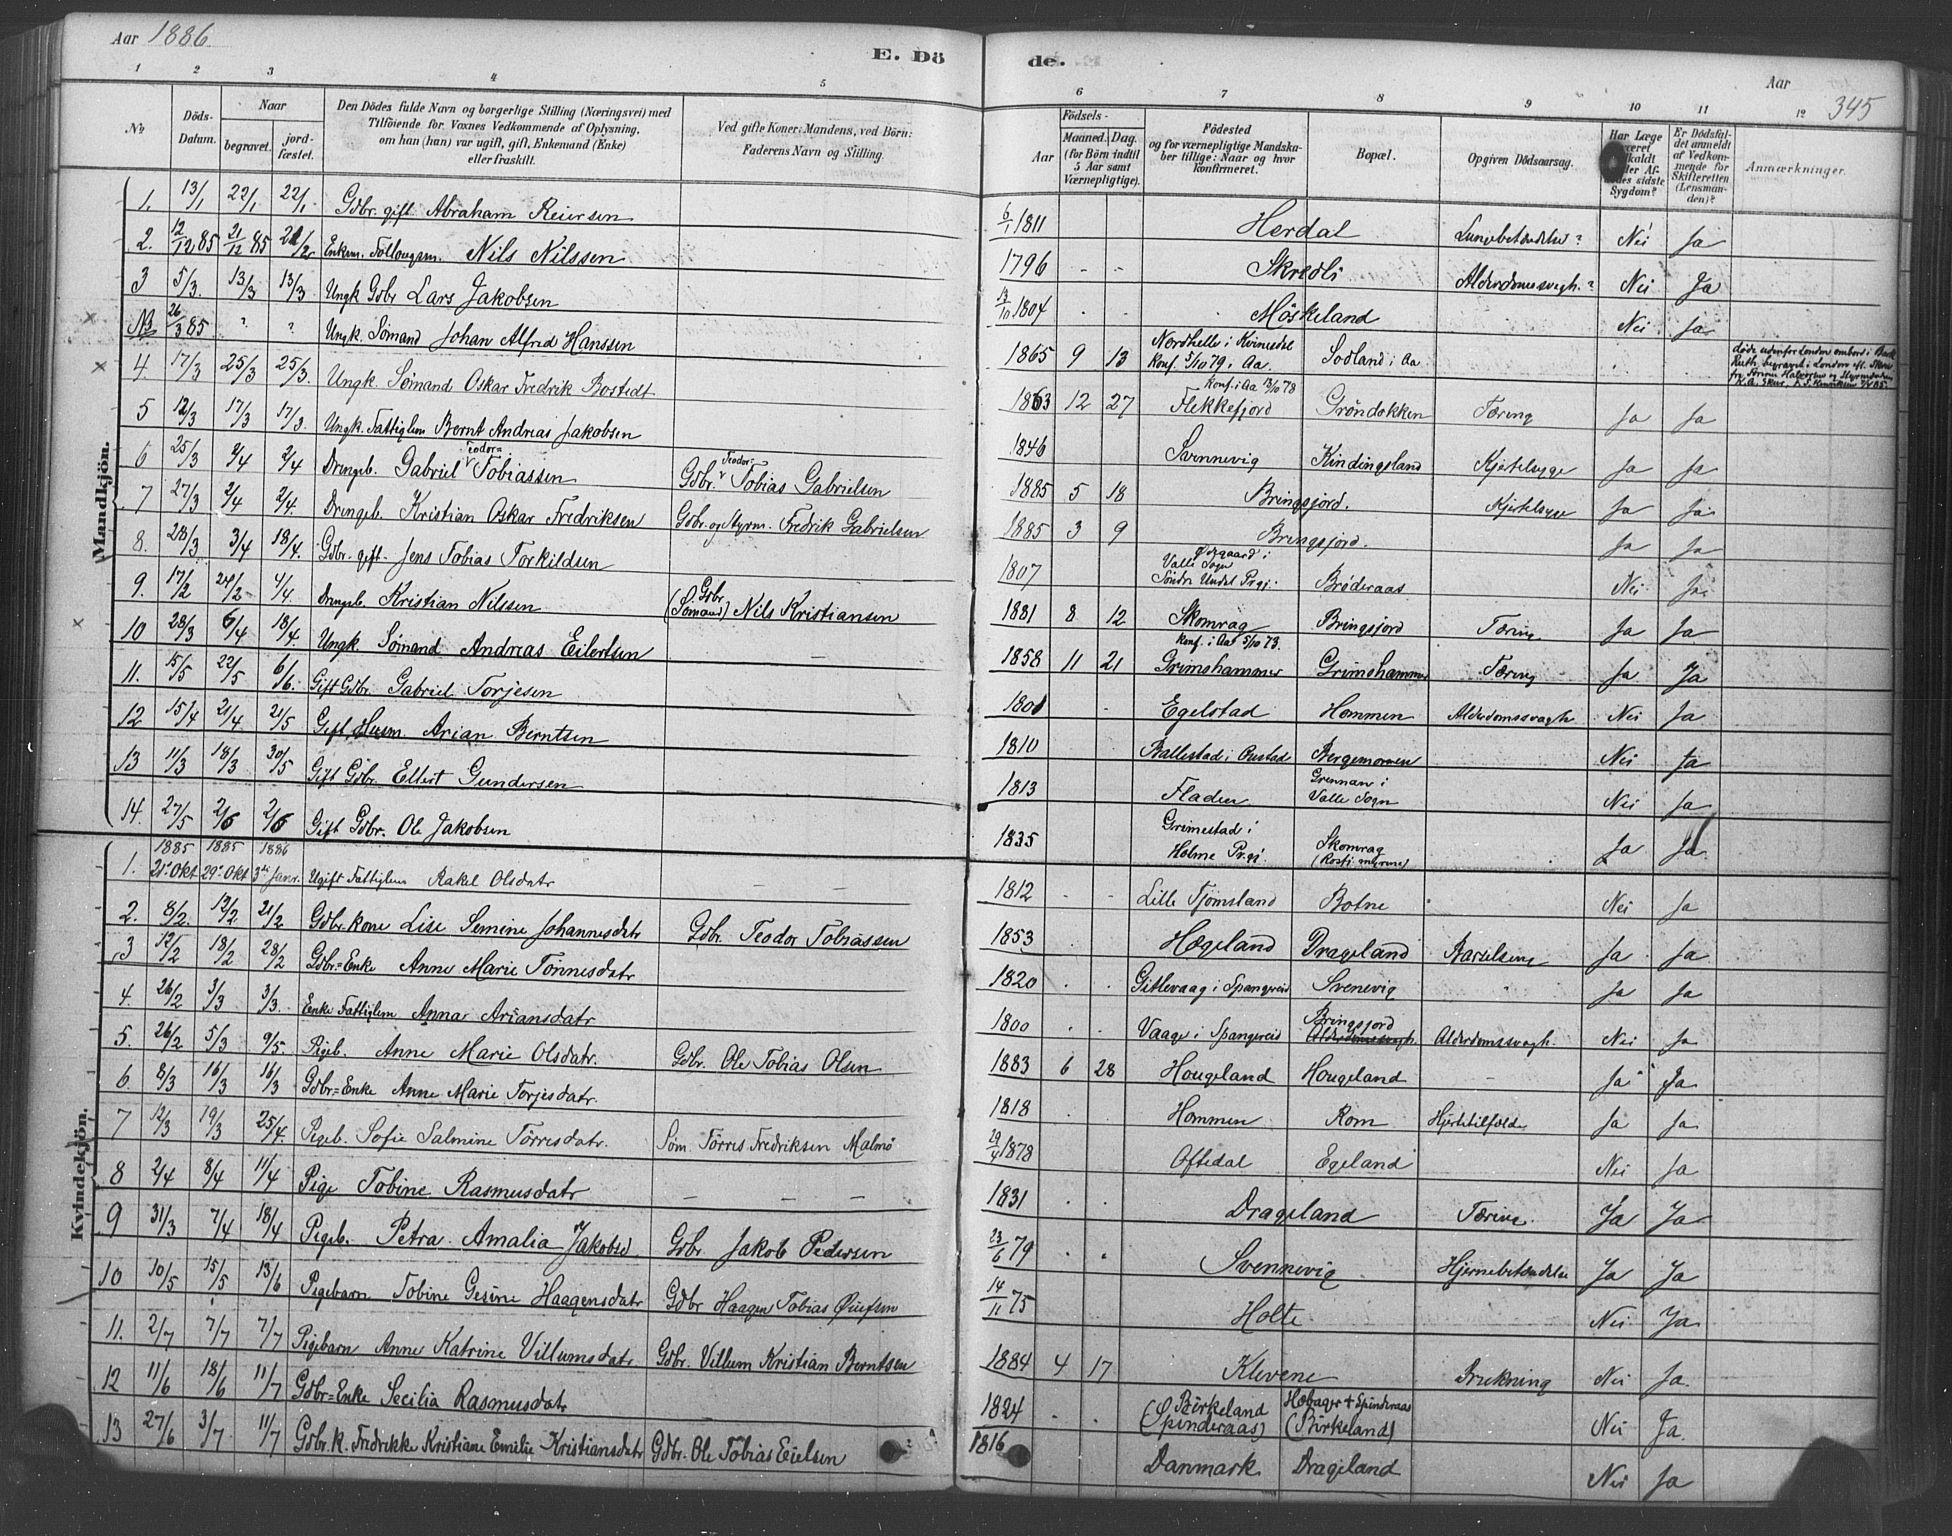 Aar 1886.
E. Dö
de.
Aar
345
1 2 3 4 5 6 7 8 9 10 11 12
No
Döds-Datum.
Naar
begravet.
jord-fæstet.
Den Dödes fulde Navn og borgerlige Stilling (Næringsvei) med
Tilföiende for Voxnes Vedkommende af Oplysning,
om han (han) var ugift, gift, Enkemand (Enke)
eller fraskilt.
Ved gifte Koner: Mandens, ved Börn:
Faderens Navn og Stilling.
Födsels-
Aar
Maaned. Dag.
(for Börn indtil
5 Aar samt
Værnepligtige).
Födested
og for værnepligtige Mandska-
ber tillige: Naar og hvor
konfirmeret.
Bopæl.
Opgiven Dödsaarsag.
Har Læge
Sygdom?
Er Dödsfal-
det anmeldt
af Vedkom-
mende for
Skifteretten
(Lensman-
den)?
Anmærkninger.
Mandkjön.
1. 13/1 22/1 22/1 Gdbr. gift Abraham Reiersen 6/1 1811 Herdal Nei Ja
2. 12/12 85 21/12 85 Enkem. Nils Nilssen 1796 - - Skredli Alderdomssvagh. ? Nei Ja
3 5/3 13/3 13/3 Ungk Gdbr Lars Jakobsen 13/10 1804 Möskeland Nei Ja
26/3 85 ? ? Ungk. Sömand Johan Alfred Hanssen 1865 9 13 Nordhelle i Kvinesdal Konf. 5/10 79 i Aa Sodland i Aa
4. 17/3 25/3 25/3 Ungk. Sömand Oskar Fredrik Bostedt 1863 12 27 Konf. i Aa 13/10 78 Flekkefjord Gröndokken Tæring Ja Ja
5 12/3 17/3 17/3 Ungk. Fattiglem Bernt Andreas Jakobsen 1846 Svennevig Kindingsland Kjertelsyge Ja Ja
6 25/3 2/4 2/4 Drengeb. Gabriel Teodor Tobiassen Gdbr. Teodor Tobias Gabrielsen 1885 5 18 Bringsjord. Kjertelsyge Ja Ja
7 27/3 2/4 2/4. Drengeb. Kristian Oskar Fredriksen Gdbr. og Styrm. Fredrik Gabrielsen 1885 3 9 Bringsjord. Ja Ja
8. 28/3 3/4 18/4. Gdbr. gift. Jens Tobias Torkildsen 1807 Valle Sogn Söndre Undal Prgj. Bröderaas Nei Ja
9. 17/2 24/2 4/4. Drengeb. Kristian Nilssen Gdbr (Sömand) Nils Kristiansen 1881 8 12 Skomrag Bringsjord Tæring Ja Ja
10 28/3 6/4 18/4. Ungk. Sömand Andreas Eilertsen 1858 11 21 Konf. i Aa 5/10 73. Grimshammer Grimshammer Tæring Ja Ja
11. 15/5 22/5 6/6. Gift Gdbr. Gabriel Torjesen 1801 Egelstad Hommen Alderdomssvagh Nei Ja
12 15/4 21/4 21/5 Gift Husm. Arian Berntsen 1810 Ballestad i Bergemoren Nei Ja
13 11/3 18/3 30/5 Gift Gdbr. Ellert Gundersen 1813 Fladen Valle Sogn Nei Ja
14. 27/5 2/6 2/6 Gift Gdbr. Ole Jakobsen 1835 Grimestad i Holme Prgj. Skomrag Ja Ja
Kvindekjön.
1. 1885 21de Okt 1885 29de Okt 1886 3de Janr. Ugift Fattiglem Rakel Olsdatr — — 1812 Lille Tjömsland Botne Nei Ja
2. 8/2. 12/2 21/2 Gdbr. kone Lise Semine Johannesdatr Gdbr. Teodor Tobiassen 1853 Hægeland Drageland Barselseng Ja Ja
3 12/2 18/2 28/2 Gdbr.=Enke Anne Marie Tonnesdatr 1820 Gitlevaag i Spangereid Svenevig Ja Ja
4. 26/2 3/3 3/3. Enke Fattiglem Anna Ariansdatr 1800 Vaage i Spangereid Bringsjord Alderdomssvagh. Alderdomssvagh. Nei Ja
5. 26/2 5/3 9/5. Pigeb. Anne Marie Olsdatr. Gdbr. Ole Tobias Olsen 1883 6 28 Hougeland Hougeland Ja Ja
6. 8/3 16/3 16/3 Gdbr=Enke Anne Marie Torjesdatr. 1818 Hommen Rom Hjertetilfælde Ja Ja
7 12/3 19/3 25/4. Pigeb. Sofie Salmine Torresdatr. Söm. Torres Fredriksen Malmö 29/4 1878 Oftedal Egeland Nei Ja
8 2/4 8/4 11/4 Pige Tobine Rasmusdatr — — — 1831 Drageland Tæring. Ja Ja
9 31/3 7/4 18/4 Pigeb. Petra Amalia Jakobsd Gdbr Jakob Pedersen 23/6 79 Svennevig Hjernebetændelse Ja Ja
10 10/5 15/5 13/6 Pigebarn Tobine Gesine Haagensdatr Gdbr Haagen Tobias 14/11 75 Holte Nei Ja
11. 2/7 7/7 7/7 Pigebarn Anne Katrine Villumsdatr Gdbr. Villum Kristian Berntsen 1884 4 17 Klevene Nei Ja
12 11/6 18/6 11/7 Gdbr=Enke Secilia Rasmusdatr 1824 Birkeland (Spinderaas) + Spinderaas (Birkeland) Nei Ja
13 27/6 3/7 11/7 Gdbr. k. Fredrikke Kristiane Emilie Kristiansdatr Gdbr. Ole Tobias Eielsen 1816 Danmark Drageland Nei Ja